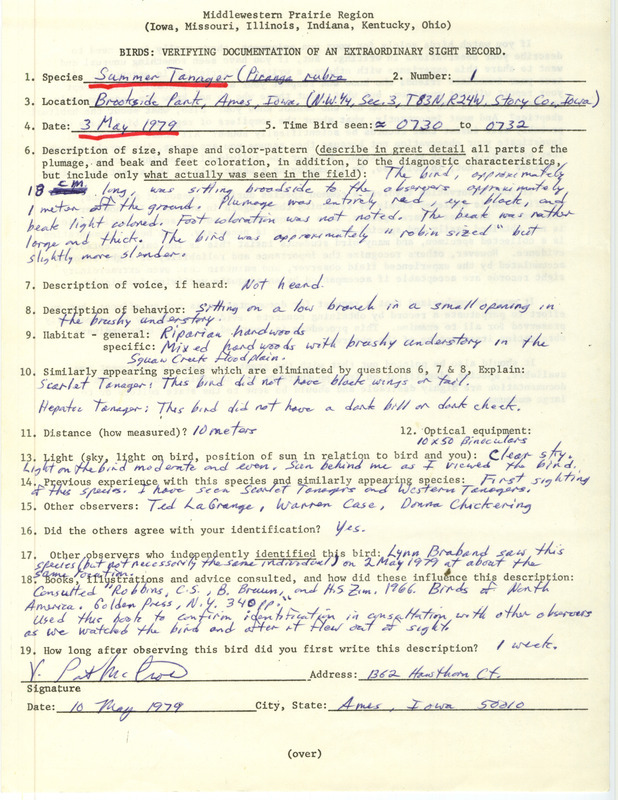 Middlewestern Prairie Region
(Iowa, Missouri, Illinois, Indiana, Kentucky, Ohio)
BIRDS: VERIFYING DOCUMENTATION OF AN EXTRAORDINARY SIGHT RECORD.
1. Species Summer Tanager (Piranga rubra 2. Number: 1
3. Location Brookside Park, Ames, Iowa (N.W.¼, Sec. 3, T83N, R24W. Story Co., Iowa)
4. Date: 3 May 1979 5. Time Bird seen: ≈ 0730 to 0732
6. Description of size, shape and color-pattern (describe in great detail all parts of the
plumage, and beak and feet coloration, in addition, to the diagnostic characteristics,
but include only what actually was seen in the field): The bird, approximately
18 cm long, was sitting broadside to the observers approximately
1 meter off the ground. Plumage was entirely red, eye black, and
beak light colored. Foot coloration was not noted. The beak was rather
large and thick. The bird was approximately "robin sized" but
slightly more slender.
7. Description of voice, if heard: Not heard.
8. Description of behavior: Sitting on a low branch in a small opening in
the brushy understory.
9. Habitat - general: Riparian hardwoods
specific: Mixed hardwoods with brushy understory in the
Squaw Creek floodplain.
10. Similarly appearing species which are eliminated by questions 6, 7 & 8, Explain:
Scarlet Tanager: This bird did not have black wings or tail.
Hepatic Tanager: This bird did not have a dark bill or dark cheek.
11. Distance (how measured)? 10 meters 12. Optical equipment:
10 x 50 Binoculars
13. Light (sky, light on bird, position of sun in relation to bird and you): Clear sky.
Light on the bird moderate and even. Sun behind me as I viewed the bird.
14. Previous experience with this species and similarly appearing species: First sighting
of this species. I have seen Scarlet Tanagers and Western Tanagers.
15. Other observers: Ted LaGrange, Warren Case, Donna Chickering
16. Did the others agree with your identification? Yes.
17. Other observers who independently identified this bird: Lynn Braband saw this
species (but not necessarily the same individual) on 2 May 1979 at about the
same location.
18. Books, illustrations and advice consulted, and how did these influence this description:
Consulted "Robbins, C.S., B. Bruun, and H.S Zim. 1966. Birds of North
America. Golden Press, N.Y. 340 pp."
Used this book to confirm identification in consultation with other observers
as we watched the bird and after it flew out of sight.
19. How long after observing this bird did you first write this description? 1 week.
V. Pat McCrow Address: 1362 Hawthorn Ct.
Signature
Date: 10 May 1979 City, State: Ames, Iowa 50010
(over)